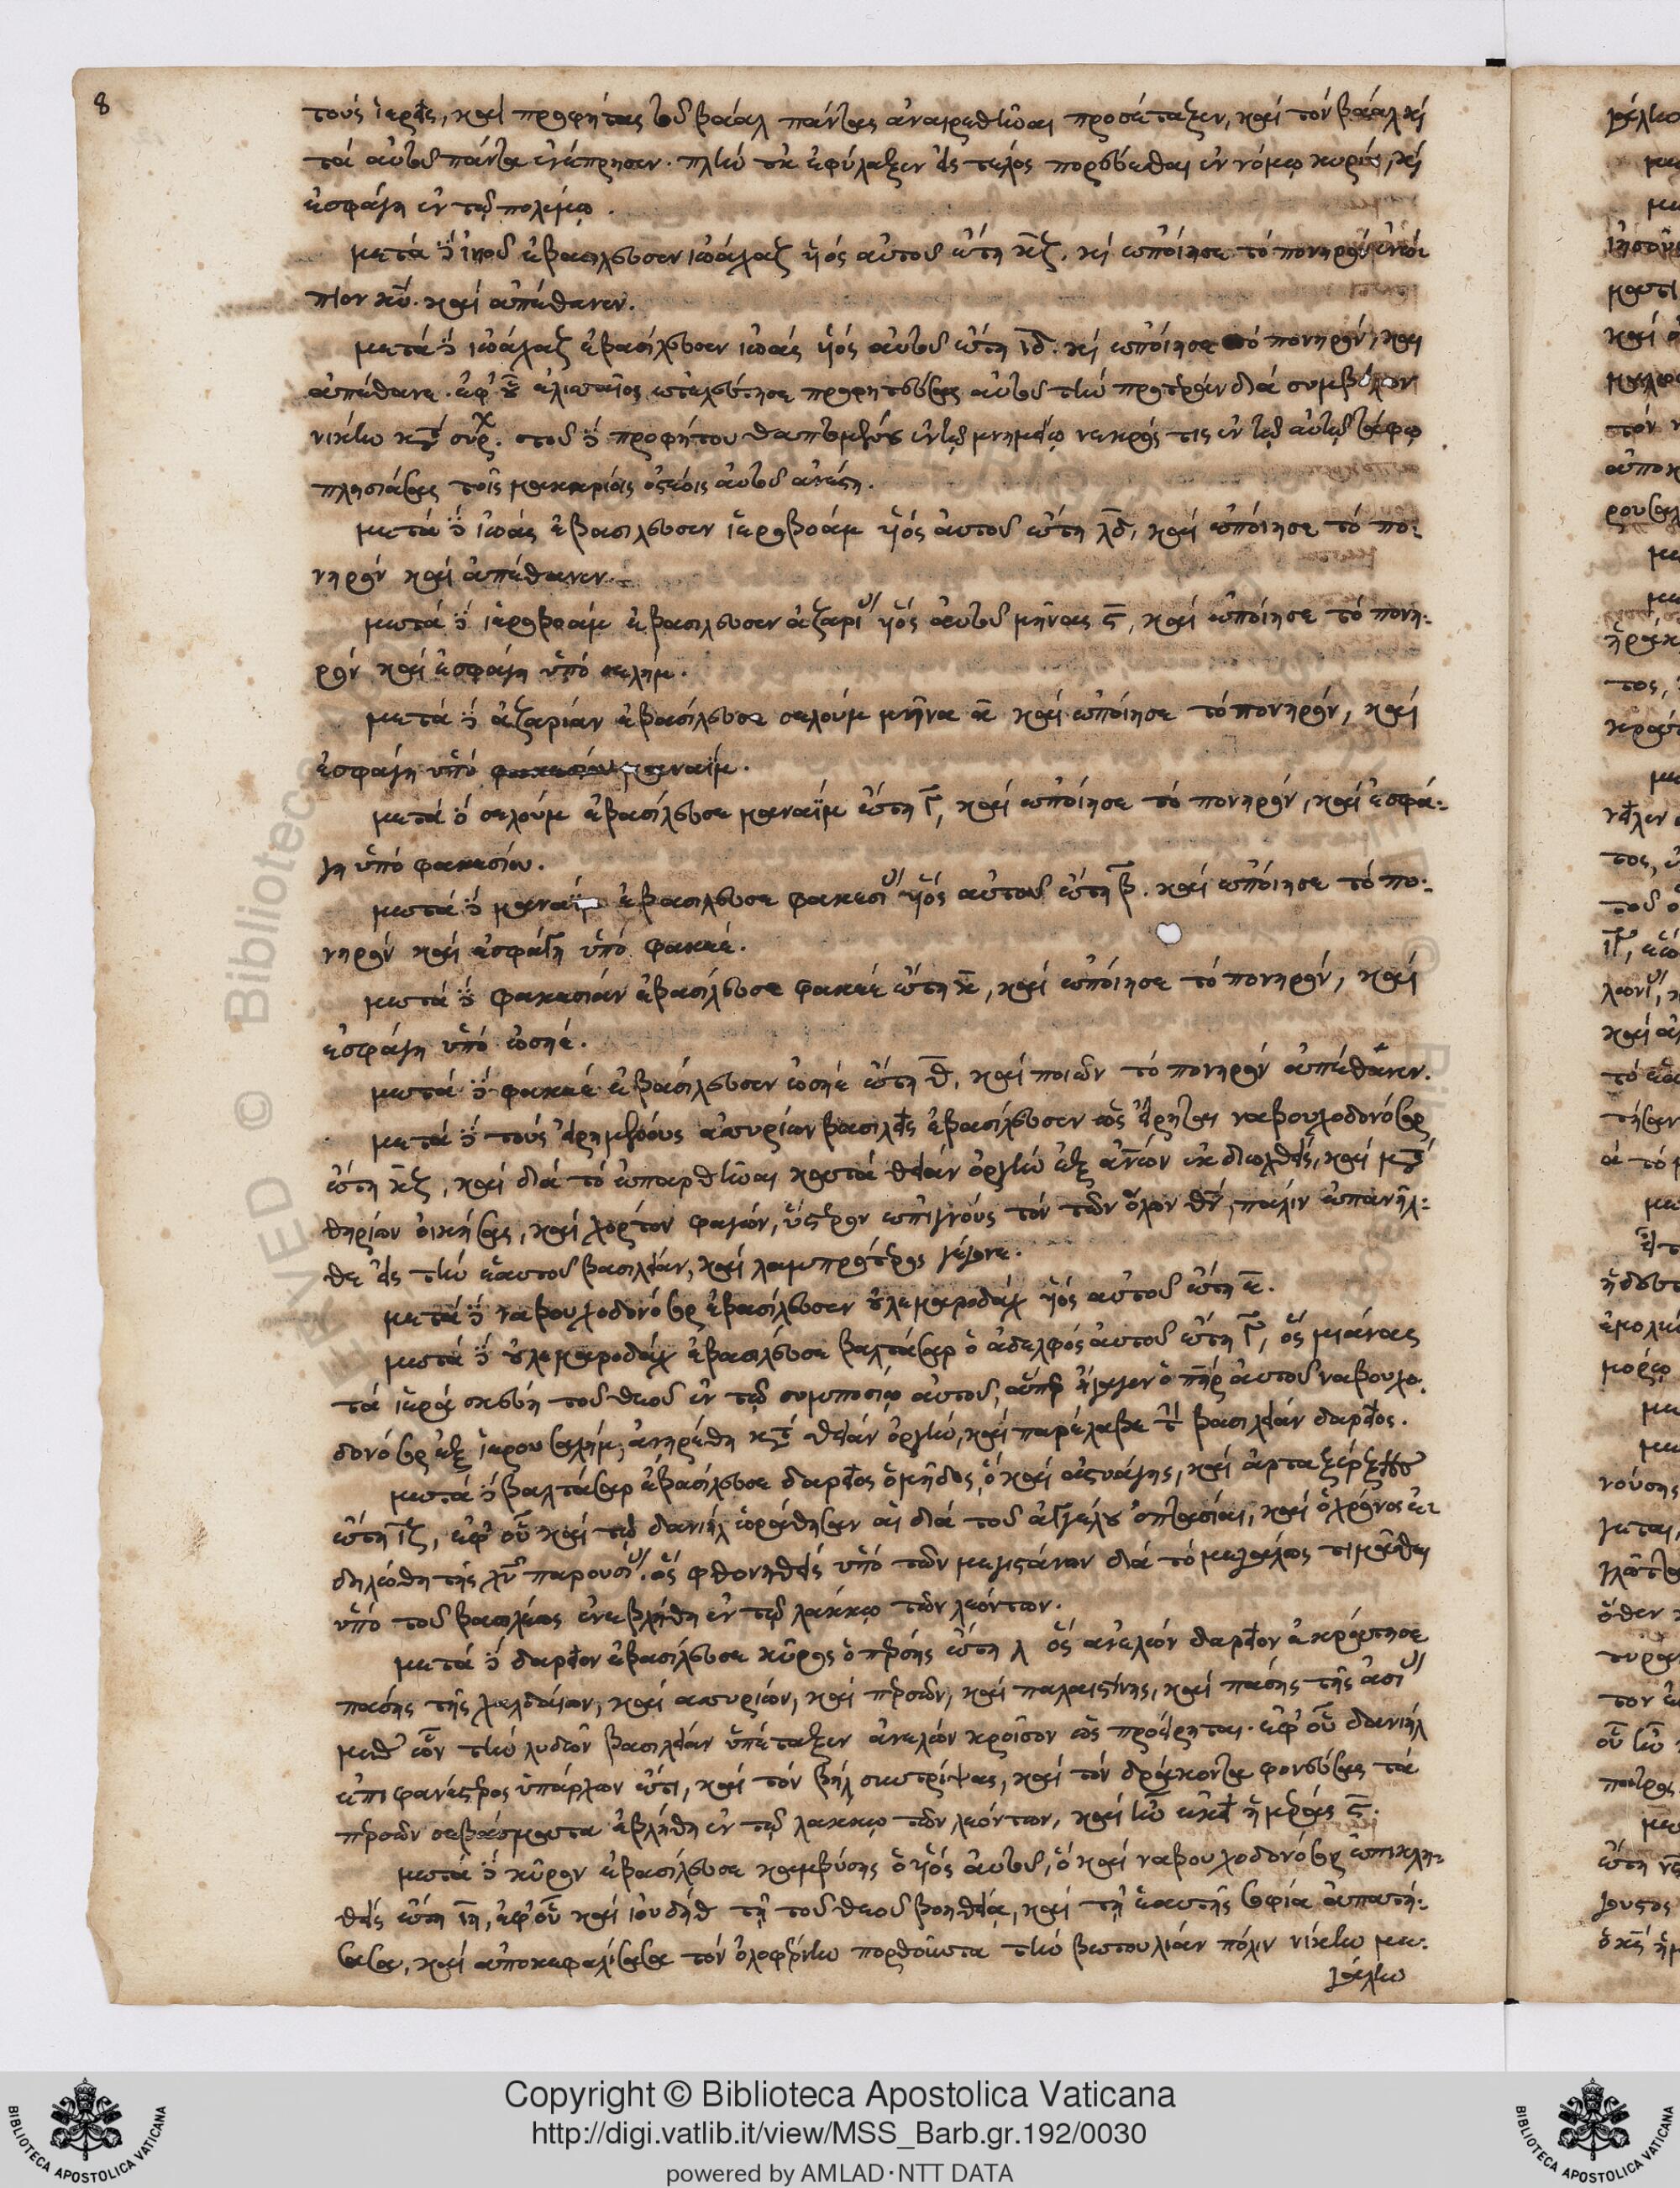 8
τοὺς ἱερεῖς, καὶ προφήτας τοῦ βάαλ πάντας ἀναιρεθῆναι προσέταξεν, καὶ τὸν βάαλ κὶ
τὰ αὐτοῦ πάντα ἐνέπρησεν. πλὴν οὐκ ἐφύλαξεν εἰς τέλος πορεύεσθαι ἐν νόμῳ κυρίου, κὶ
ἐσφάγη ἐν τῷ πολέμῳ.
μετὰ δὲ ἰηοῦ ἐβασίλευσεν ἰωάχαζ ὑιὸς αὐτοῦ ἔτη κζ. κὶ ἐποίησε τὸ πονηρὸν ἐνώ-
πιον κυ. καὶ ἀπέθανεν.
μετὰ δὲ ἰωάχαζ ἐβασίλευσεν ἰωὰς ὑιὸς αὐτοῦ ἔτη ιδ. κὶ ἐποίησε τὸ πονηρὸν, καὶ
ἀπέθανε. ἐφ' οὗ ἐλισσαῖος ἐτελεύτησε προφητεύσας αὐτοῦ τὴν προτέραν διὰ συμβόλων
νίκην κατὰ συρ. τοῦ δὲ προφήτου θαπτομένου ἐν τῷ μνημείῳ νεκρός τις ἐν τῷ αὐτῷ τάφῳ
πλησιάσας τοῖς μακαρίοις ὀστέοις αὐτοῦ ἀνέστη.
μετὰ δὲ ἰωὰς ἐβασίλευσεν ἱεροβοὰμ ὑιὸς αὐτοῦ ἔτη λδ, καὶ ἐποίησε τὸ πο-
νηρὸν καὶ ἀπέθανεν.
μετὰ δὲ ἱεροβοὰμ ἐβασίλευσεν ἀζαρίας ὑιὸς αὐτοῦ μῆνας ϛ, καὶ ἐποίησε τὸ πονη-
ρὸν καὶ ἐσφάγη ὑπὸ σελήμ.
μετὰ δὲ ἀζαρίαν ἐβασίλευσε σελοὺμ μῆνα α καὶ ἐποίησε τὸ πονηρὸν, καὶ
ἐσφάγη ὑπὸ μαναΐμ.
μετὰ δὲ σελοὺμ ἐβασίλευσε μαναῒμ ἔτη γ, καὶ ἐποίησε τὸ πονηρὸν, καὶ ἐσφά-
γη ὑπὸ φακεσίου.
μετὰ δὲ μαναῒμ ἐβασίλευσε φακεσίας ὑιὸς αὐτοῦ ἔτη β. καὶ ἐποίησε τὸ πο-
νηρὸν καὶ ἐσφάγη ὑπὸ φακεέ.
μετὰ δὲ φακεσίαν ἐβασίλευσε φακεὲ ἔτη κ, καὶ ἐποίησε τὸ πονηρὸν, καὶ
ἐσφάγη ὑπὸ ὡσηέ.
μετὰ δὲ φακεὲ ἐβασίλευσεν ὡσηὲ ἔτη θ, καὶ ποιῶν τὸ πονηρὸν ἀπέθανεν.
μετὰ δὲ τοὺς εἰρημένους ἀσσυρίων βασιλεῖς ἐβασίλευσεν ὡς εἴρηται ναβουχοδονόσορ
ἔτη κζ, καὶ διὰ τὸ ἐπαρθῆναι κατὰ θείαν ὀργὴν ἐξ ἀνθρώπων ἐκδιωχθεὶς, καὶ μετὰ
θηρίων οἰκήσας, καὶ χόρτον φαγὼν, ὕστερον ἐπιγνοὺς τὸν τῶν ὅλων θν, πάλιν ἐπανῆλ-
θε εἰς τὴν ἑαυτοῦ βασιλείαν, καὶ λαμπρότερος γέγονε.
μετὰ δὲ ναβουχοδονόσορ ἐβασίλευσεν οὐλεμαροδὰχ ὑιὸς αὐτοῦ ἔτη ε.
μετὰ δὲ οὐλεμαροδὰχ ἐβασίλευσε βαλτάσαρ ὁ ἀδελφὸς αὐτοῦ ἔτη γ, ὃς μιάνας
τὰ ἱερὰ σκεύη τοῦ θεοῦ ἐν τῷ συμποσίῳ αὐτοῦ, ἅπερ ἤγαγεν ὁ πηρ αὐτοῦ ναβουχο-
δονόσορ ἐξ ἱερουσαλὴμ, ἀνῃρέθη κατὰ θείαν ὀργὴν, καὶ παρέλαβε τὴν βασιλείαν δαρεῖος.
μετὰ δὲ βαλτάσαρ ἐβασίλευσε δαρεῖος ὁ μῆδος, ὁ καὶ ἀστυάγης, καὶ ἀρταξέρξης
ἔτη ιζ, ἐφ' οὗ καὶ τῷ δανιὴλ ἑωράθησαν αἱ διὰ τοῦ ἀγγέλου ὀπτασίαι, καὶ ὁ χρόνος ἐ-
δηλώθη τῆς χυ παρουσίας. ὃς φθονηθεὶς ὑπὸ τῶν μεγιστάνων διὰ τὸ μεγάλως τιμᾶσθαι
ὑπὸ τοῦ βασιλέως ἐνεβλήθη ἐν τῷ λάκκῳ τῶν λεόντων.
μετὰ δὲ δαρεῖον ἐβασίλευσε κῦρος ὁ πέρσης ἔτη λ ὃς ἀνελὼν δαρεῖον ἐκράτησε
πάσης τῆς χαλδαίων, καὶ ἀσσυρίων, καὶ περσῶν, καὶ παλαιστίνης, καὶ πάσης τῆς ἀσίας
μεθ' ὧν τὴν λυδῶν βασιλείαν ὑπέταξεν ἀνελὼν κροῖσον ὡς προείρηται. ἐφ' οὗ δανιὴλ
ἐπιφανέστερος ὑπάρχων ἔτι, καὶ τὸν βὴλ συντρίψας, καὶ τὸν δράκοντα φονεύσας τὰ
περσῶν σεβάσματα ἐβλήθη ἐν τῷ λάκκῳ τῶν λεόντων, καὶ ἦν ἐκεῖ ἡμέρας ϛ.
μετὰ δὲ κῦρον ἐβασίλευσε καμβύσης ὁ ὑιὸς αὐτοῦ, ὁ καὶ ναβουχοδονόσορ ἐπικλη-
θεὶς ἔτη ιη, ἐφ' οὗ καὶ ἰουδὴθ τῇ τοῦ θεοῦ βοηθείᾳ, καὶ τῇ ἑαυτῆς σοφίᾳ ἀπατή-
σασα, καὶ ἀποκεφαλίσασα τὸν ὀλοφέρνην πορθοῦντα τὴν βετουλίαν πόλιν νίκην με-
γάλην
Copyright © Biblioteca Apostolica Vaticana
http://digi.vatlib.it/view/MSS_Barb.gr.192/0030
powered by AMLAD·NTT DATA